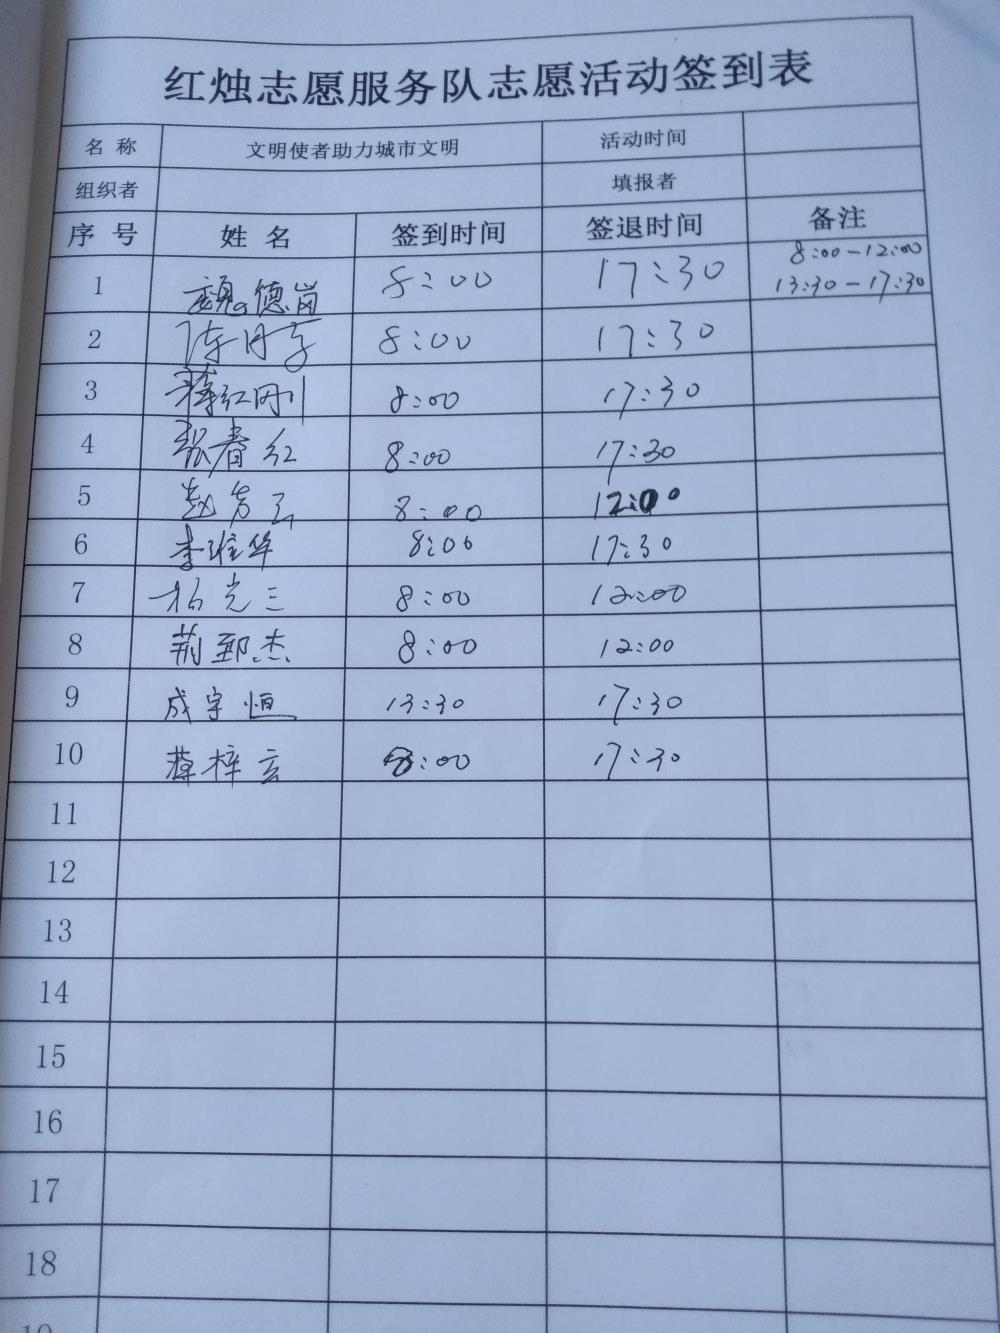 红烛志愿服务队志愿活动签到表
名 称 文明使者助力城市文明 活动时间
组织者 填报者
序 号 姓 名 签到时间 签退时间 备注
1 德岗 8:00 17:30 8:00-12:00 13:30-17:30
2 陈月 8:00 17:30
3 蒋红刚 8:00 17:30
4 张春红 8:00 17:30
5 赵芳云 8:00 12:00
6 李维华 8:00 17:30
7 杨光三 8:00 12:00
8 荆郅杰 8:00 12:00
9 成宇恒 13:30 17:30
10 梓玄 8:00 17:30
11
12
13
14
15
16
17
18
19